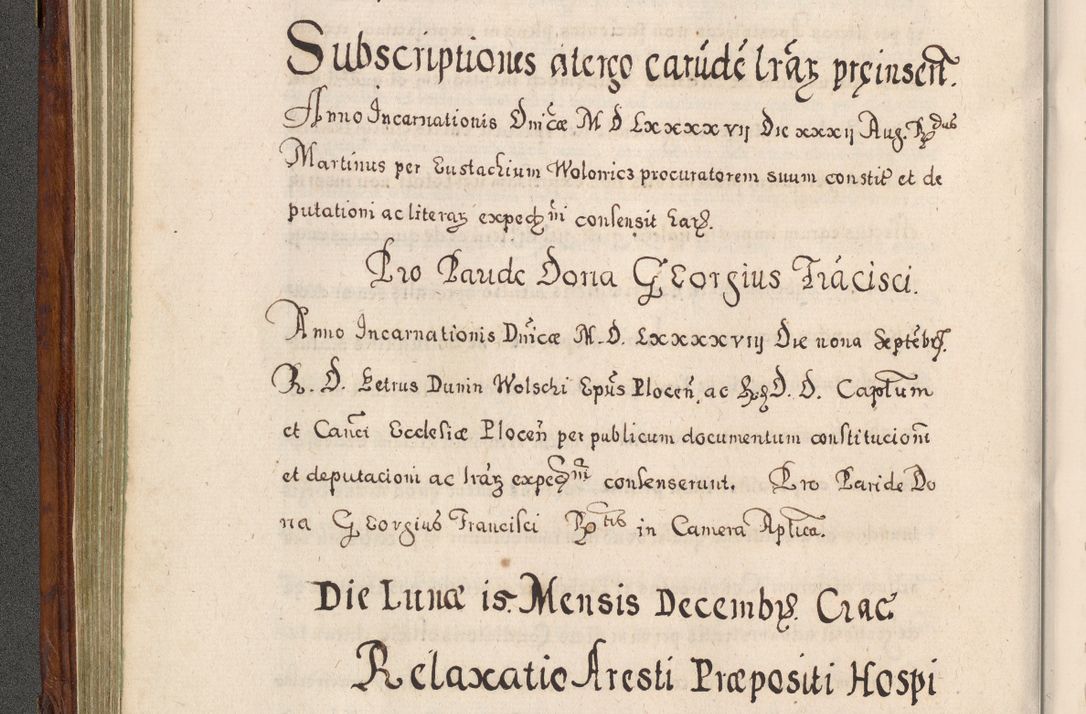 Subscriptiones atergo earūdē lr̄aꝝ prȩinsert̄.
Anno Incarnationis Dnīcæ M D Lxxxxvij Die xxxij Aug. R̄dus
Martinus per Eustachium Wolonicz procuratorem suum constit et de
putationi ac literaꝝ exped̄ni consensit earꝝ.
Pro Paride Dona Georgius Frācisci.
Anno Incarnationis Dnīcæ M. D. Lxxxxviij Die nona Septēbr̄.
R. D. Petrus Dunin Wolschi Epūs Plocen̄, ac D. D. Capľum
et Canci Ecclesiæ Plocen̄ per publicum documentum constitucioni
et deputacioni ac lr̄aꝝ exped̄ni consenserunt. Pro Paride Do
na Georgius Francisci Rptis in Camera Aplica.
Die Lunæ 15. Mensis Decembꝝ. Crac:
Relaxatio Aresti Præpositi Hospi